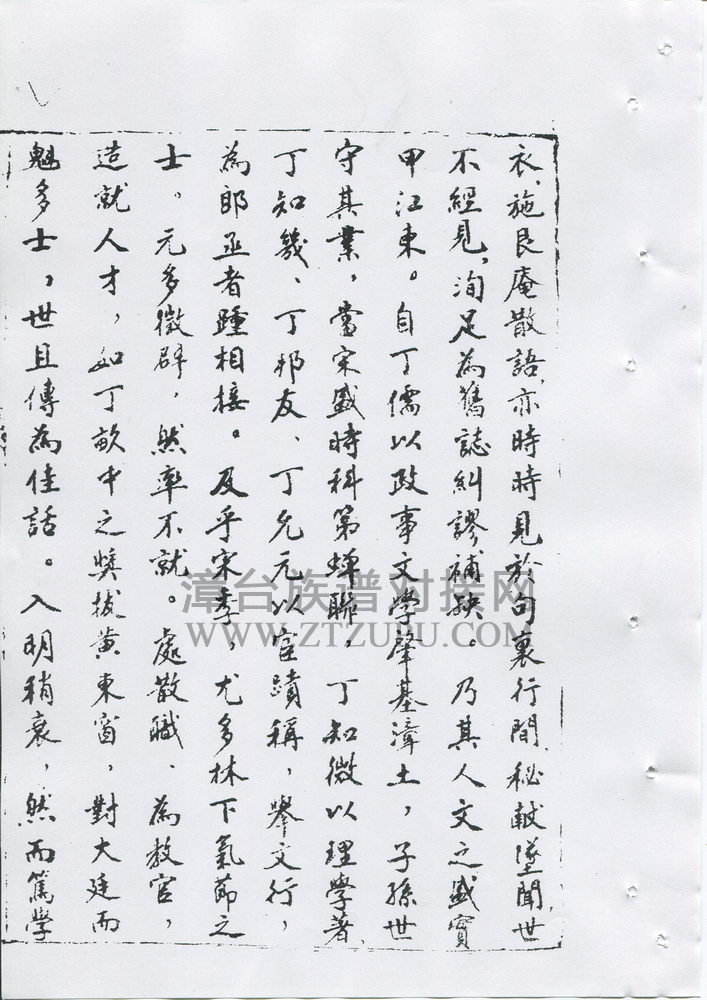 衣、施艮庵散語、亦時時見於句裏行間、秘軷墜聞、世
不經見、洵足為舊誌糾謬補抰。乃其人文之盛實
甲江東。自丁儒以政事文學肇基漳土，子孫世
守其業，當宋盛時科第蟬聯，丁知微以理學著、
丁知幾、丁邦友、丁允元以宦蹟稱，舉文行，
為郎丞者踵相接。及乎宋季，尤多林下氣節之
士。元多徵辟，然率不就。處散職、為教官，
造就人才，如丁畝中之獎拔黃東窗，對大廷而
魁多士，世且傳為佳話。入明稍衰，然而篤學
漳台族谱对接网
WWW.ZTZUPU.COM